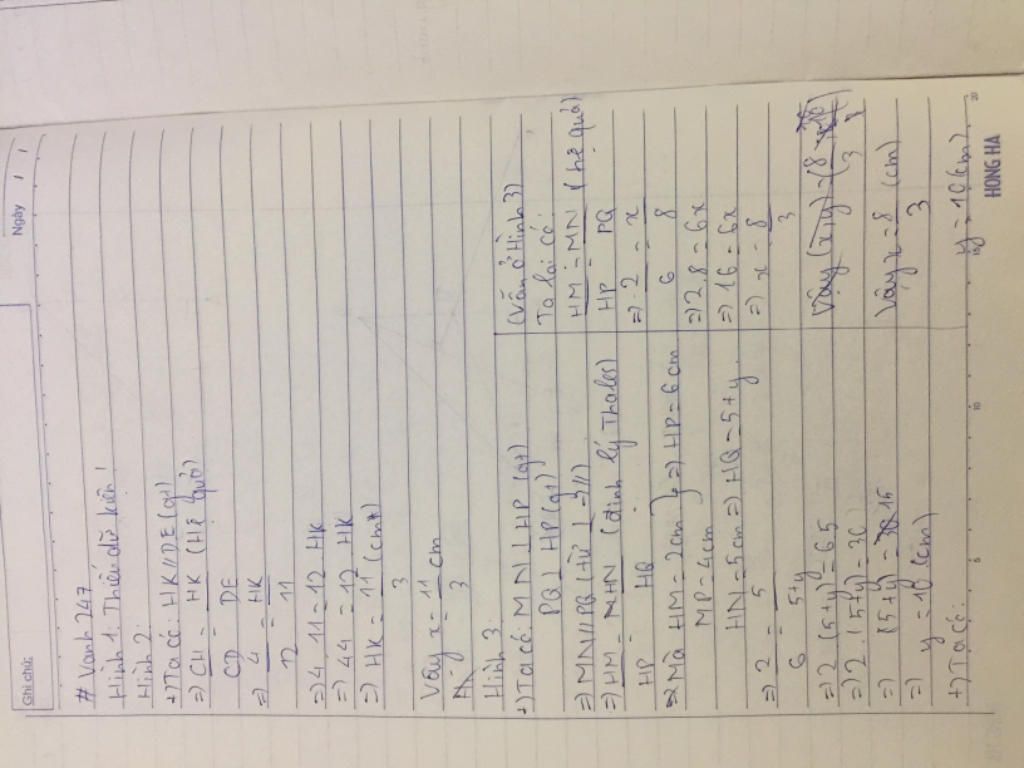 Ghi chú:
Ngày
# Vanh 247
Hình 1: Thiếu dữ kiện!
Hình 2:
+) Ta có: HK // DE (gt)
=> CH/CD = HK/DE (Hệ quả)
=> 4/12 = HK/11
=> 4.11 = 12 HK
=> 44 = 12 HK
=> HK = 11/3 (cm)
Vậy x = 11/3 cm
Hình 3:
+) Ta có: MN ⊥ HP (gt)
PQ ⊥ HP (gt)
=> MN // PQ (từ ⊥ -> //)
=> HM/HP = HN/HQ (định lý Thales)
=> Mà HM = 2cm } => HP = 6 cm
MP = 4cm
HN = 5cm => HQ = 5+y
=> 2/6 = 5/5+y
=> 2 (5+y) = 6.5
=> 2.(5+y) = 30
=> (5+y) = 15
=> y = 10 (cm)
+) Ta có:
(Vẫn ở Hình 3)
Ta lại có
HM/HP = MN/PQ (hệ quả)
=> 2/6 = x/8
=> 2.8 = 6x
=> 16 = 6x
=> x = 8/3
Vậy x = 8/3 (cm)
y = 10 (cm)
5
10
15
20
HONG HA